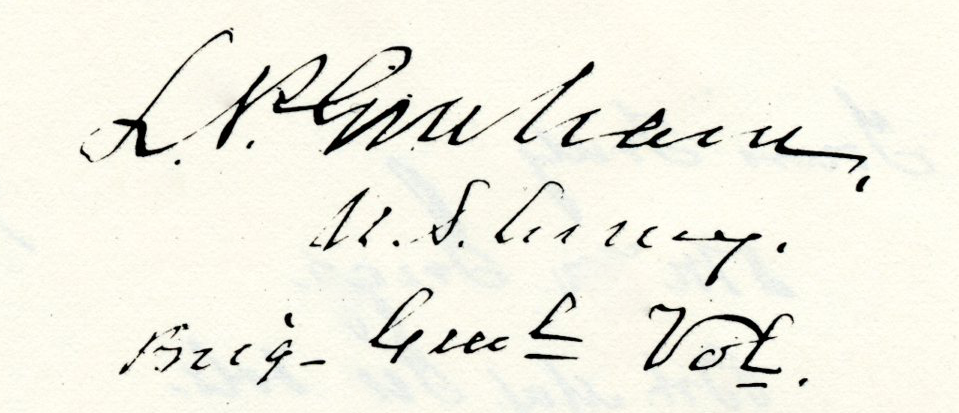 L. P. Graham,
U. S. Army.
Brig- Genl Vol.